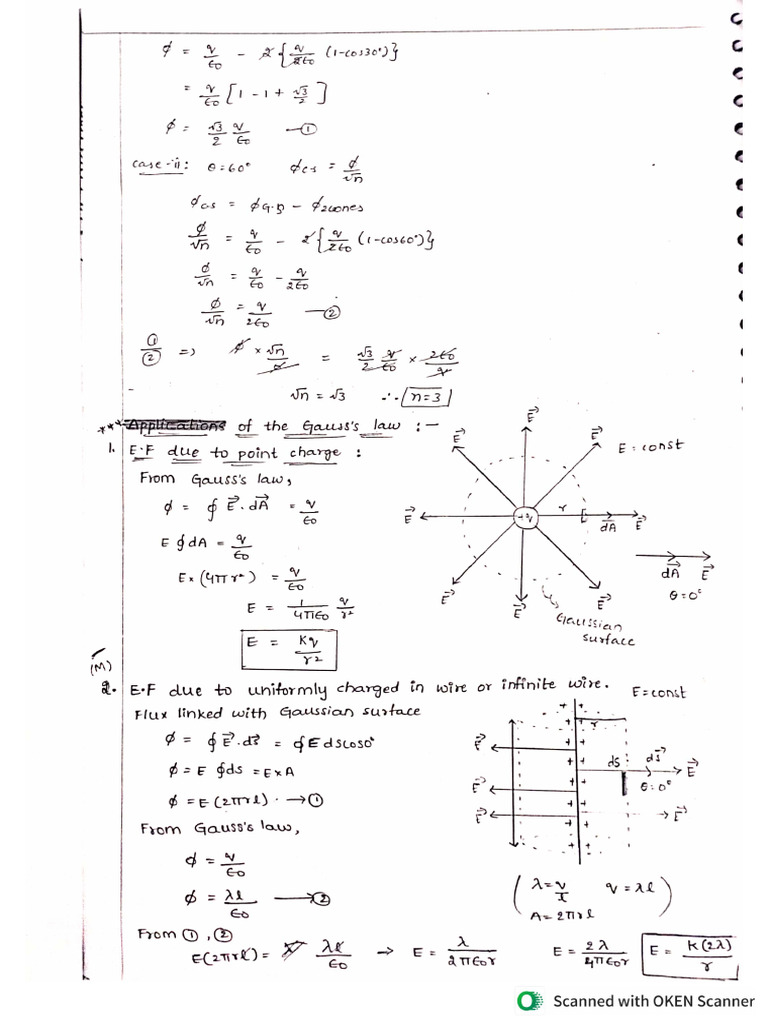 ϕ = q/ϵ0 - 2{q/2ϵ0 (1-cos30°)}
= q/ϵ0 [1 - 1 + √3/2]
ϕ = √3/2 q/ϵ0 —①
case-ii: θ=60° ϕcs = ϕ/√n
ϕcs = ϕG.S - ϕ2cones
ϕ/√n = q/ϵ0 - 2{q/2ϵ0 (1-cos60°)}
ϕ/√n = q/ϵ0 - q/2ϵ0
ϕ/√n = q/2ϵ0 —②
①/② => ϕ × √n/ϕ = √3/2 q/ϵ0 × 2ϵ0/q
√n = √3 ∴ n=3
*** Applications of the Gauss's law :-
1. E.F due to point charge :
From Gauss's law,
ϕ = ∮ E⃗.dA⃗ = q/ϵ0
E∮dA = q/ϵ0
E×(4πr²) = q/ϵ0
E = 1/4πϵ0 q/r²
E = Kq/r²
E⃗
E⃗
E⃗
E = const
E⃗
+q
r
dA⃗
E⃗
dA⃗ E⃗
θ=0°
E⃗
E⃗
E⃗
Gaussian
surface
(M)
2. E.F due to uniformly charged in wire or infinite wire.
E=const
Flux linked with Gaussian surface
ϕ = ∮E⃗.ds⃗ = ∮E ds cos0°
ϕ = E ∮ds = E×A
ϕ = E(2πrl). →①
From Gauss's law,
ϕ = q/ϵ0
ϕ = λl/ϵ0 →②
r
E⃗
ds
ds⃗
E⃗
θ=0°
E⃗
E⃗
E⃗
(λ=q/l q=λl
A=2πrl)
From ①,②
E(2πrl) = λl/ϵ0 → E = λ/2πϵ0r E = 2λ/4πϵ0r E = K(2λ)/r
Scanned with OKEN Scanner